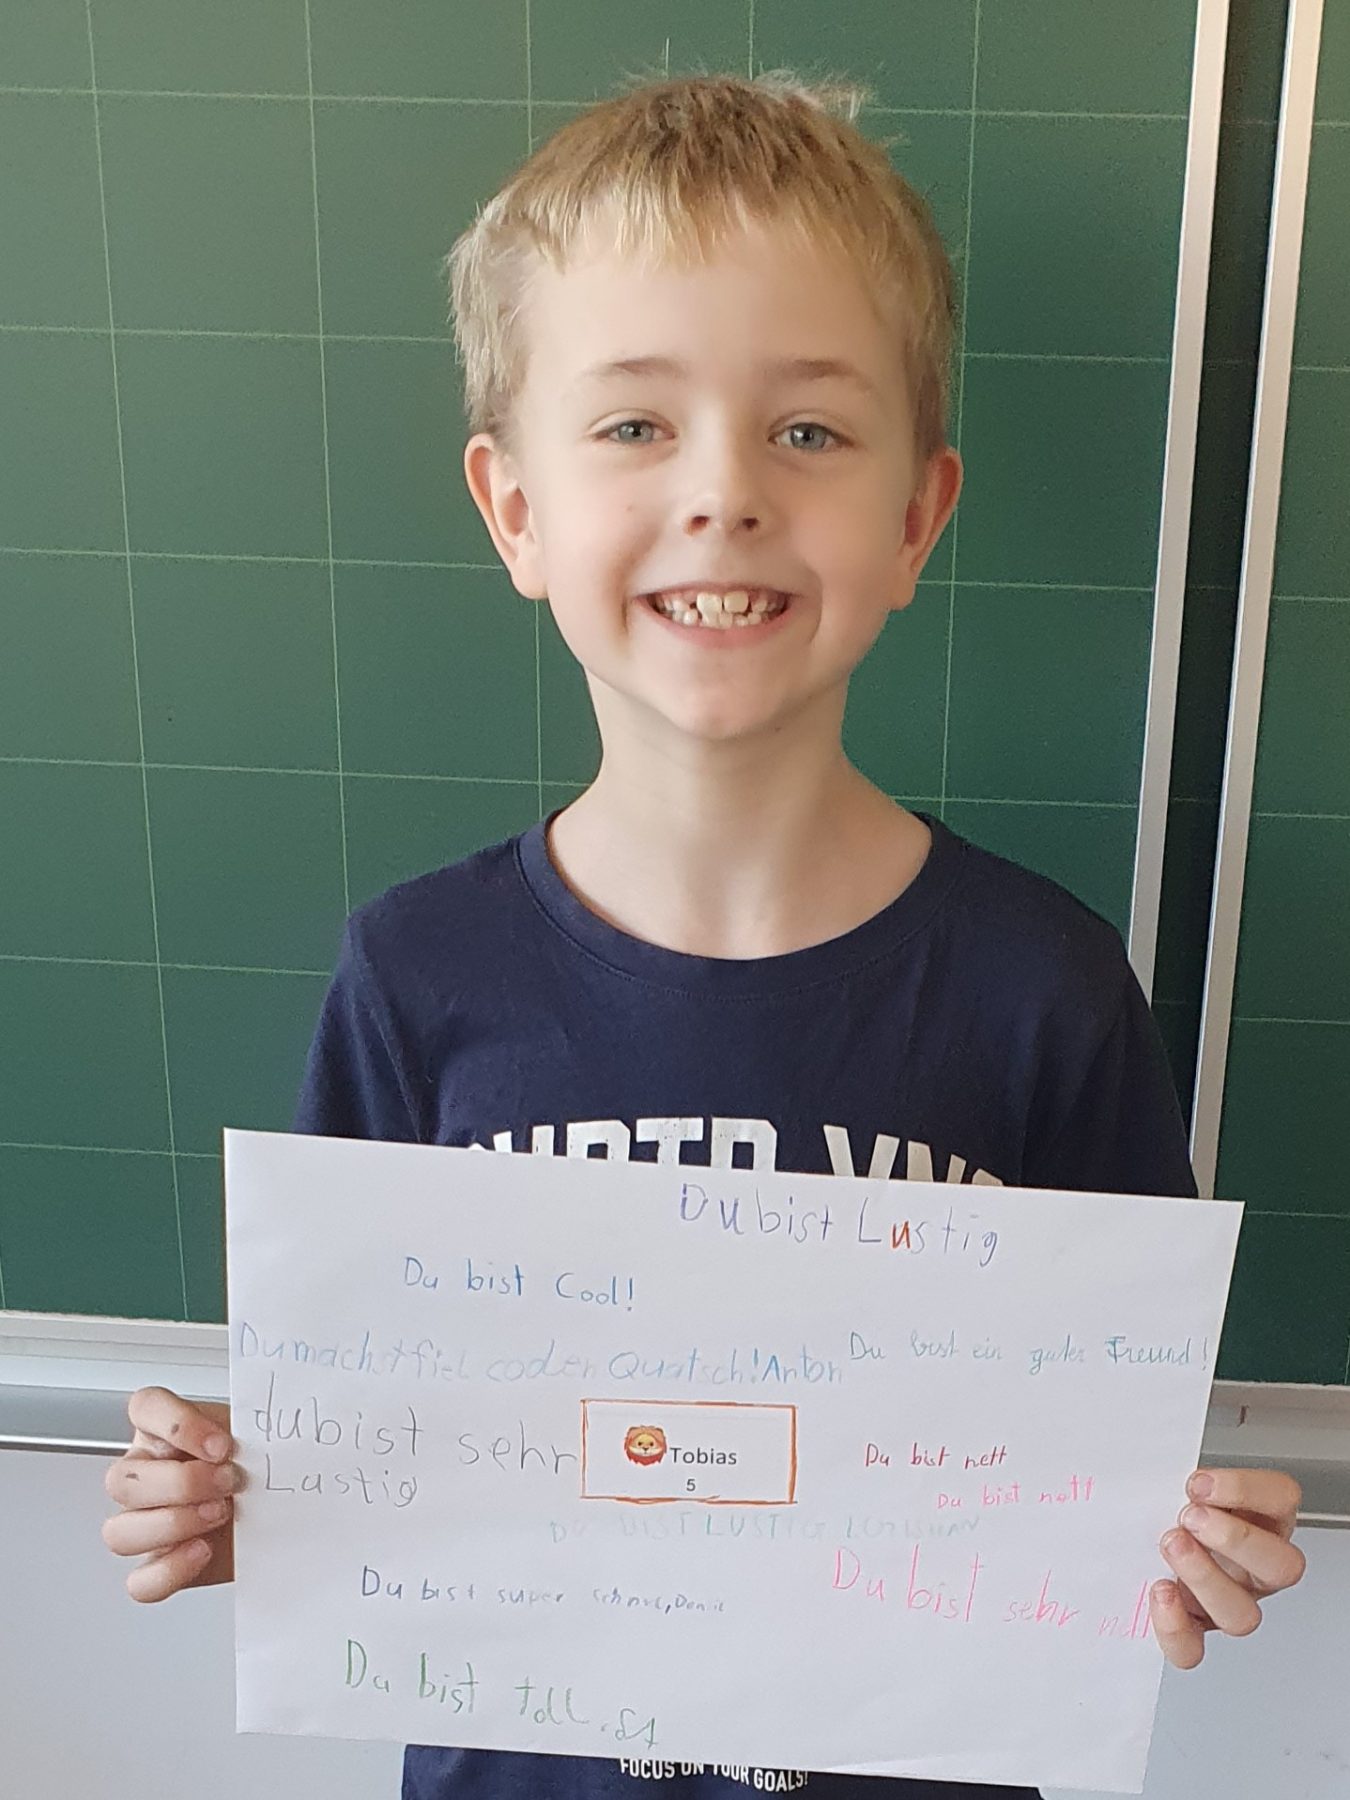 Du bist Lustig
Du bist Cool!
Du machst fiel coolen Quatsch! Anton
Du bist ein guter Freund!
du bist sehr
Lustig
Tobias
5
Du bist nett
Du bist nett
DU BIST LUSTIG
Du bist super
Du bist sehr nett
Du bist toll.
FOCUS ON YOUR GOALS!